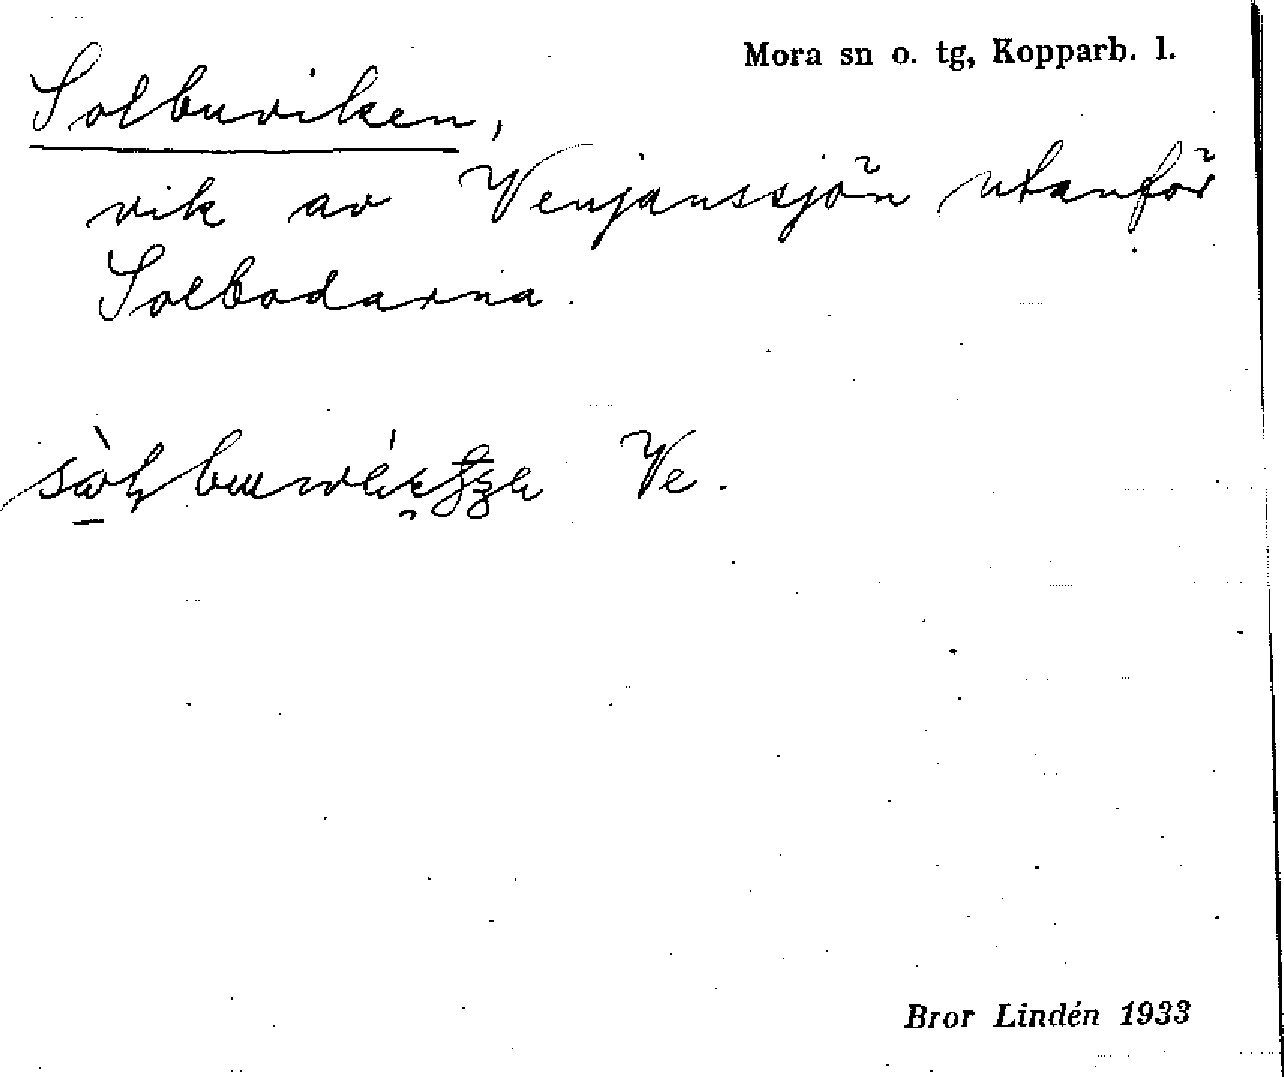 Mora sn o. tg, Kopparb. l.
Solbuviken,
vik av Venjanssjön utanför
Solbodarna.
Ve.
Bror Lindén 1933